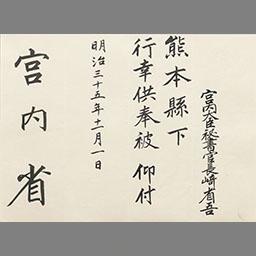 宮内大臣秘書官長崎省吾
熊本縣下
行幸供奉被 仰付
明治三十五年十一月一日
宮内省